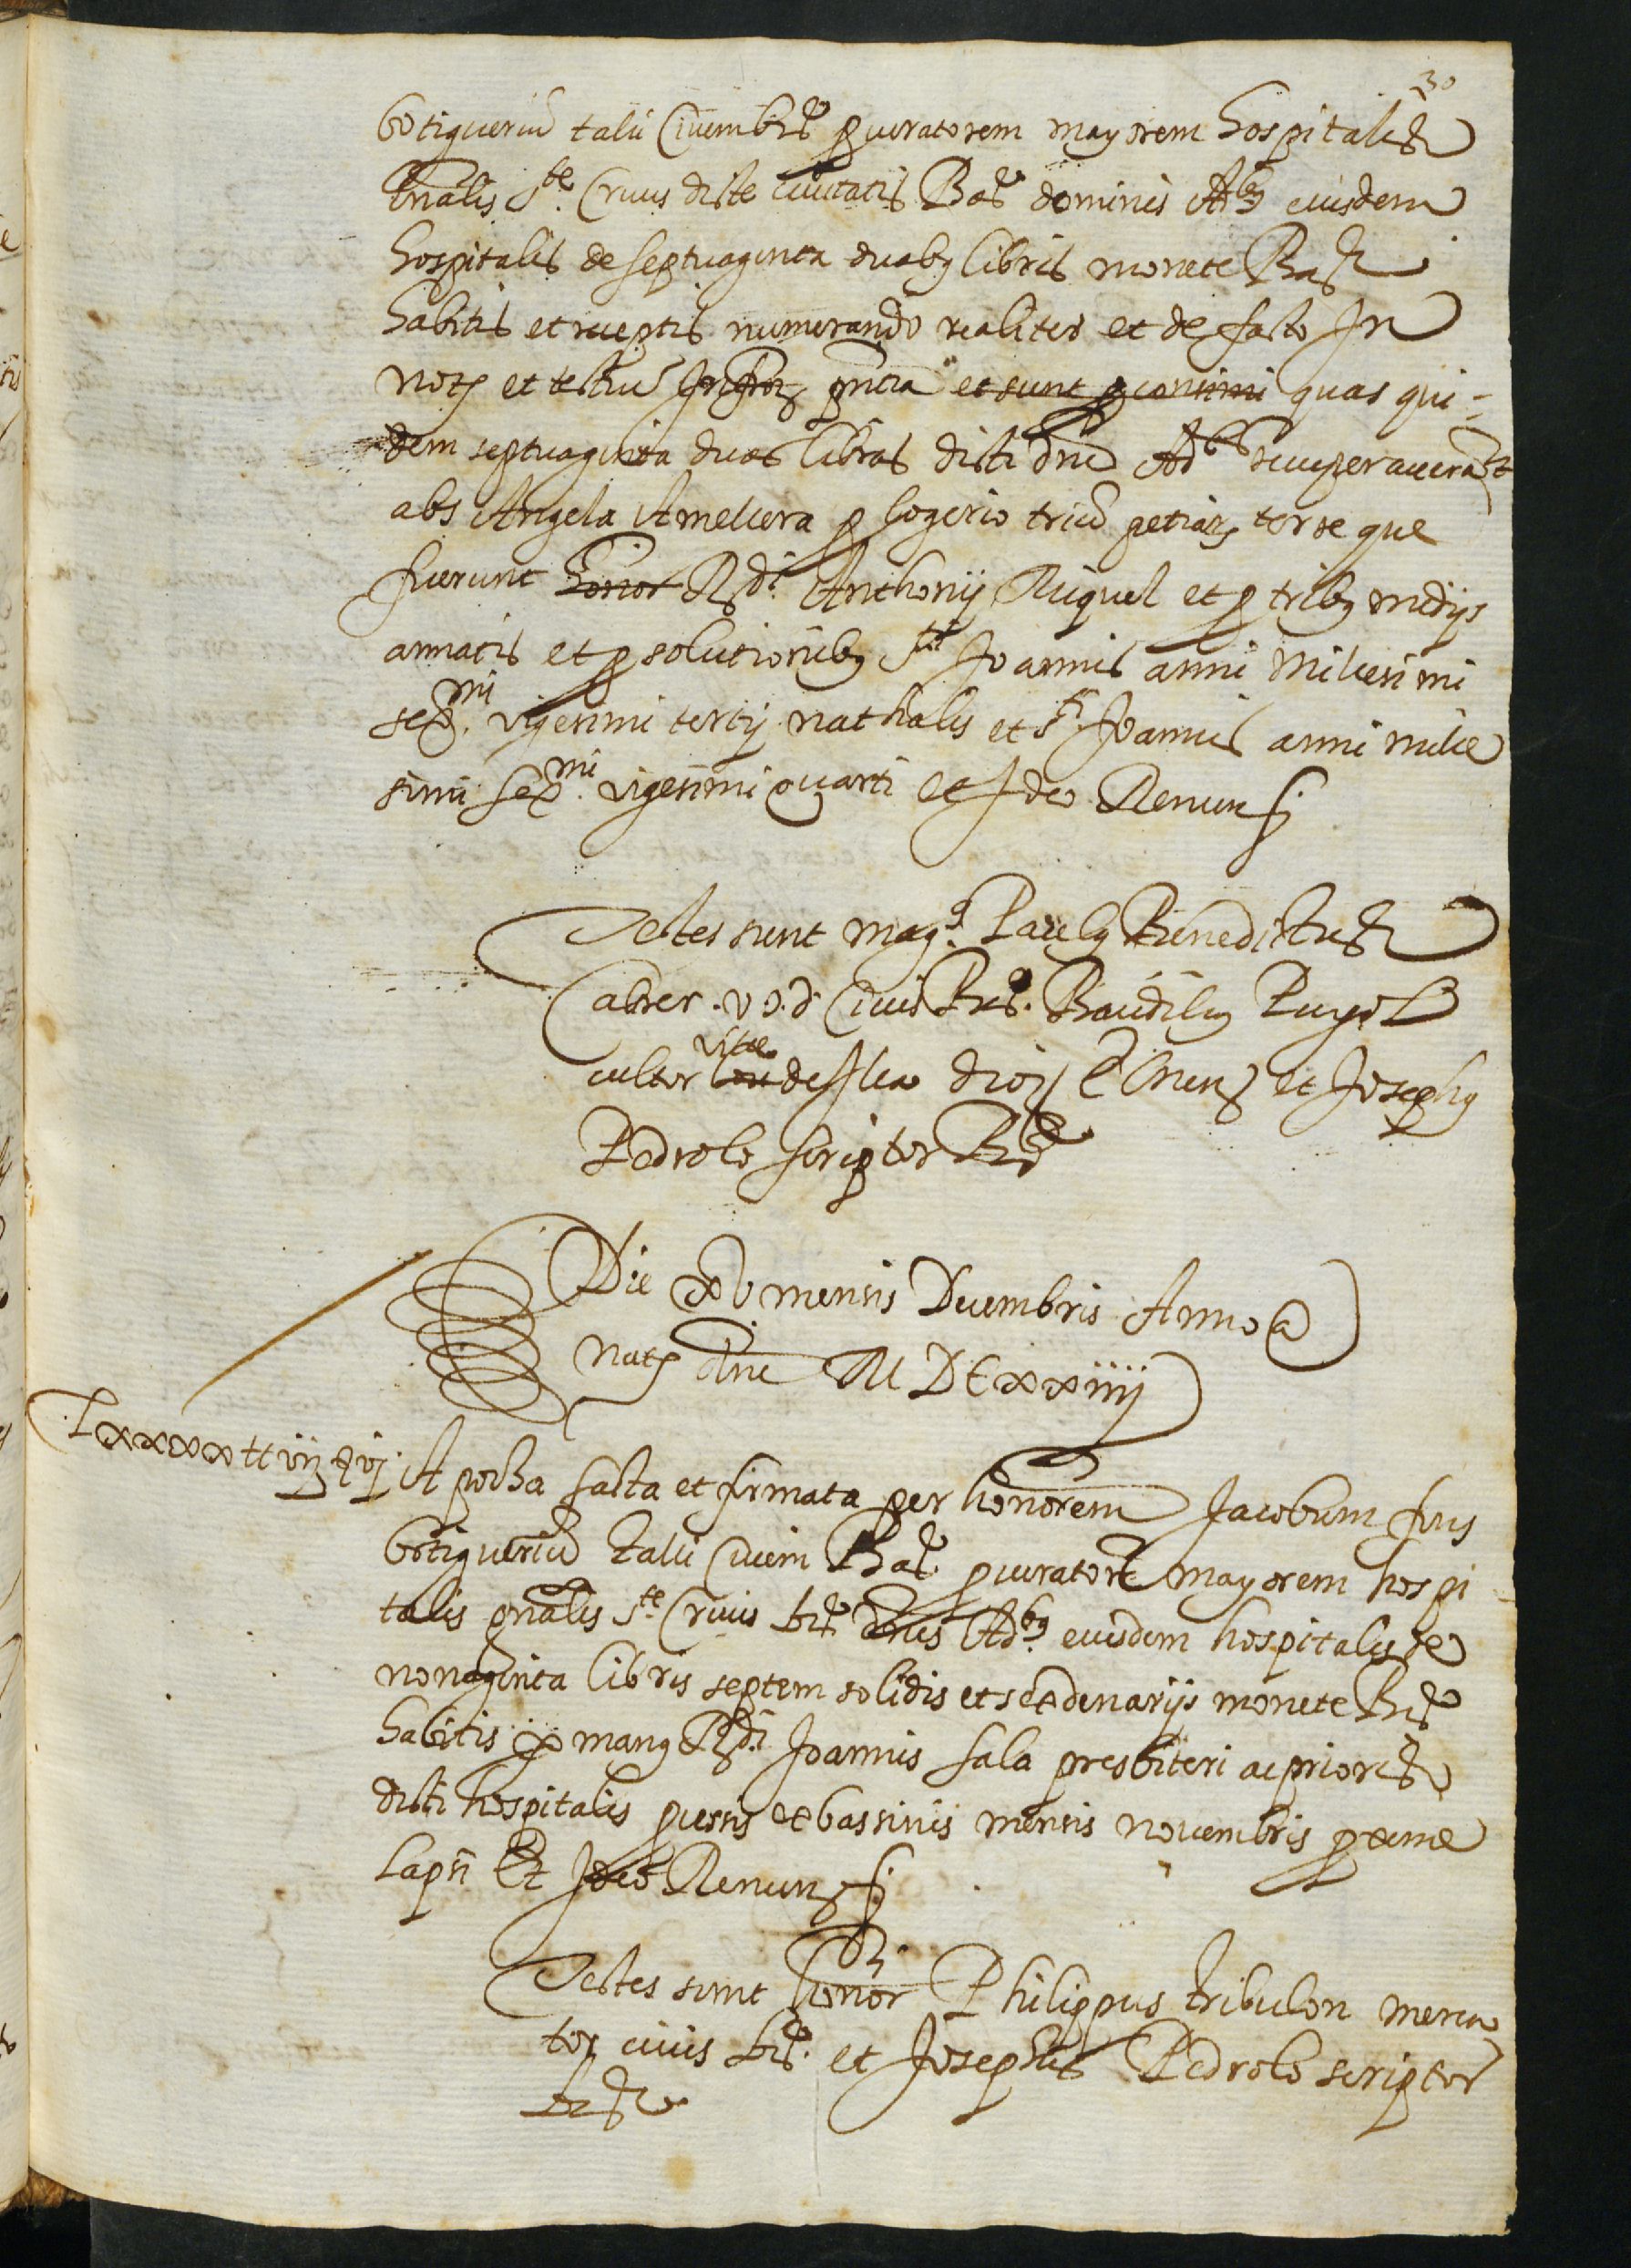 30
botiguerium talii Civem bñe procuratorem mayorem hospitalis
gñalis Ste. Crucis dicte civitatis Bãe dominis Adbus eiusdem
hospitalis de septuaginta duabus libris monete Bañe
habitis et receptis numerando realiter et de facto In
notri et testium infrorum pñtia et sunt quas qui=
dem septuaginta duas libras dicti dñi Adres recuperaverunt
abs Angela Amellera pro logerio trium petiarum terre que
fuerunt honor Rdi. Anthonij Miquel et pro tribus medijs
annatis et pro solutionibus Sti Joannis anni Millesimi
sexmi. vigesimi tertij nathalis et Sti Joannis anni mille
simi sexmi. vigesimi quarti et Ideo Renun &.
Testes sunt magcus. Paulus Benedictus
Cabrer .v J. d. Civis Bñe. Baudilius Pujol
cultor ville de Alea diocesis Elnen et Josephus
Pedrolo scriptor Bñe
Die xv mensis Decembris Anno a
natte dñi M DC xxiiij
Lxxxx tt vij s vj Apocha facta et firmata per honorem Jacobum fris
botiguerium talii Civem Bãe. procuratore mayorem hospi
talis gñalis Ste. Crucis bñe dñis Adbus. eiusdem hospitalis de
nonaginta libris septem solidis et sex denarijs monete Bñe
habitis per manus Rdi. Joannis Sala presbiteri ac prioris
dicti hospitalis processis ex bassinis mensis novembris proxime
lapsi Et Ideo Renun &.
Testes sunt honor Philippus tribulon merca
tor civis bñe. et Josephus Pedrolo scriptor
bñe